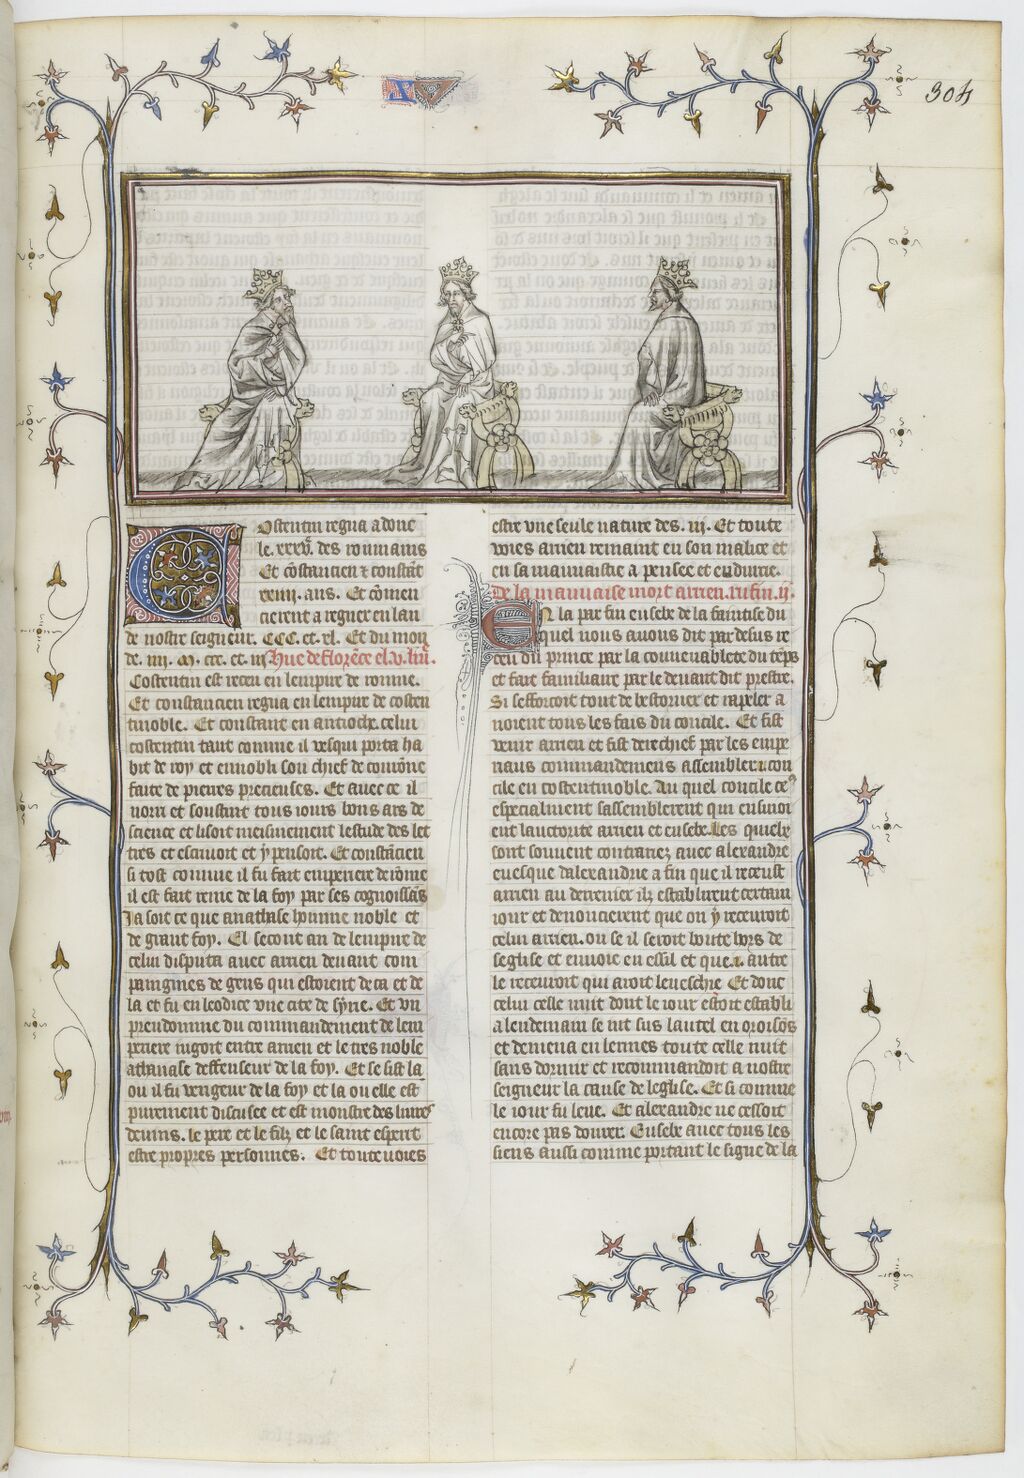 XV
304
Costentin regna adonc
le .xxxv. des roumains
Et cõstancien ⁊ constãt
xxiiij. ans. Et cõmen
cierent a regner en lan
de nostre seigneur. CCC. et. xl. Et du mon
de. iiij. M. ccc. et. iij. Hue de florẽce el. v. liu.
Costentin est receu en lempire de romme.
Et constancien regna en lempire de costen
tinoble. Et constant en antioche. celui
costentin tant comme il vesqui porta ha
bit de roy et ennobli son chief de courõne
faite de pierres precieuses. Et auec ce il
norri et soustint tous iours bons ars de
science et lisoit meismement lestude des let
tres et escriuoit et y pensoit. Et constãcien
si tost comme il fu fait emperiere de rõme
il est fait reme de la foy par ses cognoissãs
Ja soit ce que anathase homme noble et
de grant foy. El secont an de lempire de
celui disputa auec arrien deuant com
paingnies de gens qui estoient de ca et de
la et fu en leodice vne cite de syrie. Et vn
preudomme du commandement de lem
periere iugoit entre arrien et le tres noble
athanase deffenseur de la foy. Et se fist la
ou il fu vengeur de la foy et la ou elle est
purement discusee et est monstre des liures
deuins. le pere et le filz et le saint esperit
estre propres personnes. Et toute uoies
estre vne seule nature des. iij. Et toute
voies arrien remaint en son malice et
en sa mauuaistie a pensee et endurcie.
De la mauuaise mort arrien. rufin. ij.
En la par fin eusebe de la faintise du
quel nous auons dit par desus re
ceu du prince par la couuenablete du tẽps
et fait familiaire par le deuant dit prestre.
Si sefforcoit tout de bestorner et rapeler a
noient tous les fais du concile. Et fist
venir arrien et fist derechief par les empe
riaus commandemens assembler .i. con
cile en costentinoble. Au quel concile ce⁹
especialment sassemblerent qui ensuioi
ent lauctorite arrien et eusebe. Les quielx
sont souuent contrariez auec alexandre
euesque dalexandrie a fin que il receust
arrien au derrenier ilz establirent certain
iour et denoncierent que ou y receuroit
celui arrien. ou se il seroit boute hors de
leglise et enuoie en essil et que .i. autre
le receuroit qui auoit leueschie Et donc
celui celle nuit dont le iour estoit establi
a lendemain se iut sus lautel en oroisõs
et demena en lermes toute celle nuit
sans dormir et recommandoit a nostre
seigneur la cause de leglise. Et si comme
le iour fu leue. Et alexandre ne cessoit
encore pas dourer. Eusebe auec tous les
siens aussi comme portant le signe de la